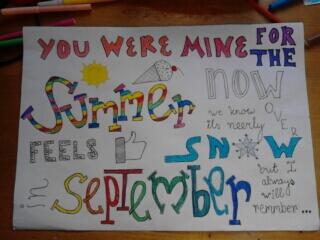 YOU WERE MINE FOR THE
Summer
NOW
we know
its neerly
OVER
FEELS
SNOW
in
SEPTEMBER
but I
always
will
remmber...